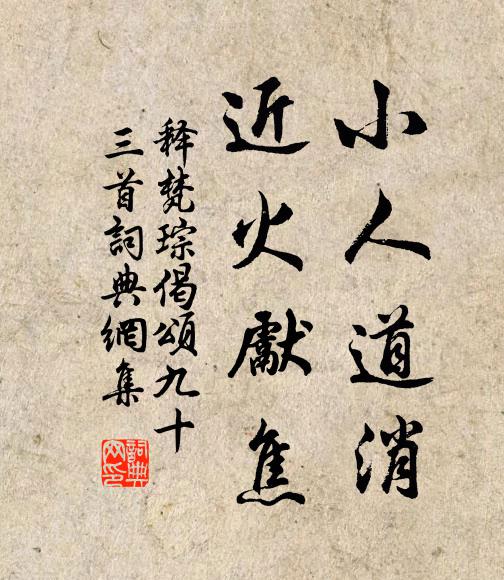 小人道消
近火獻焦
释梵琮偈頌九十
三首詞典網集
詞典
网印